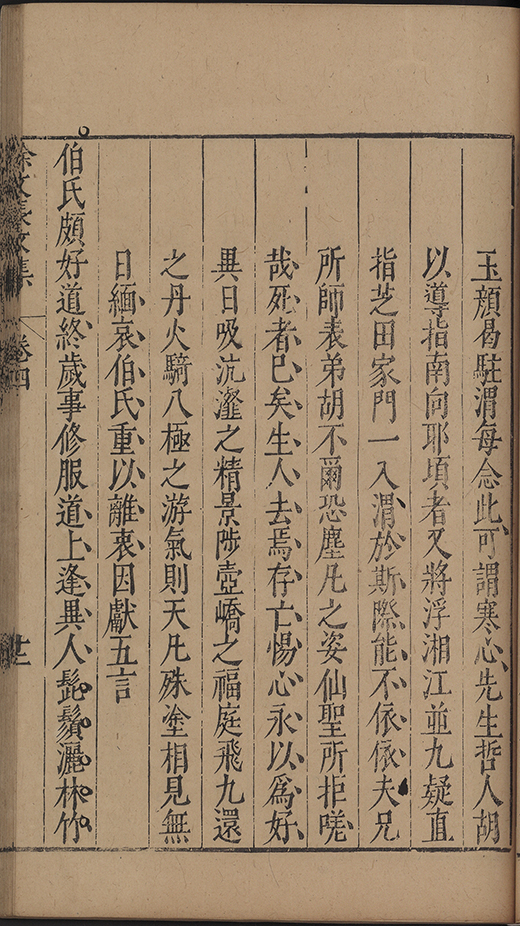 玉顔曷駐渭每念此可謂寒心先生哲人胡
以導指南向耶頃者又將浮湘江並九疑直
指芝田家門一入渭於斯際能不依依夫兄
所師表弟胡不爾恐塵凡之姿仙聖所拒嗟
哉死者已矣生人去焉存亡惕心永以爲好
異日吸沆瀣之精景陟壺嶠之福庭飛九還
之丹火騎八極之游氣則天凡殊塗相見無
日緬哀伯氏重以離衷因獻五言
伯氏頗好道終歲事修服道上逢異人髭鬚灑林竹
徐文長文集
卷四